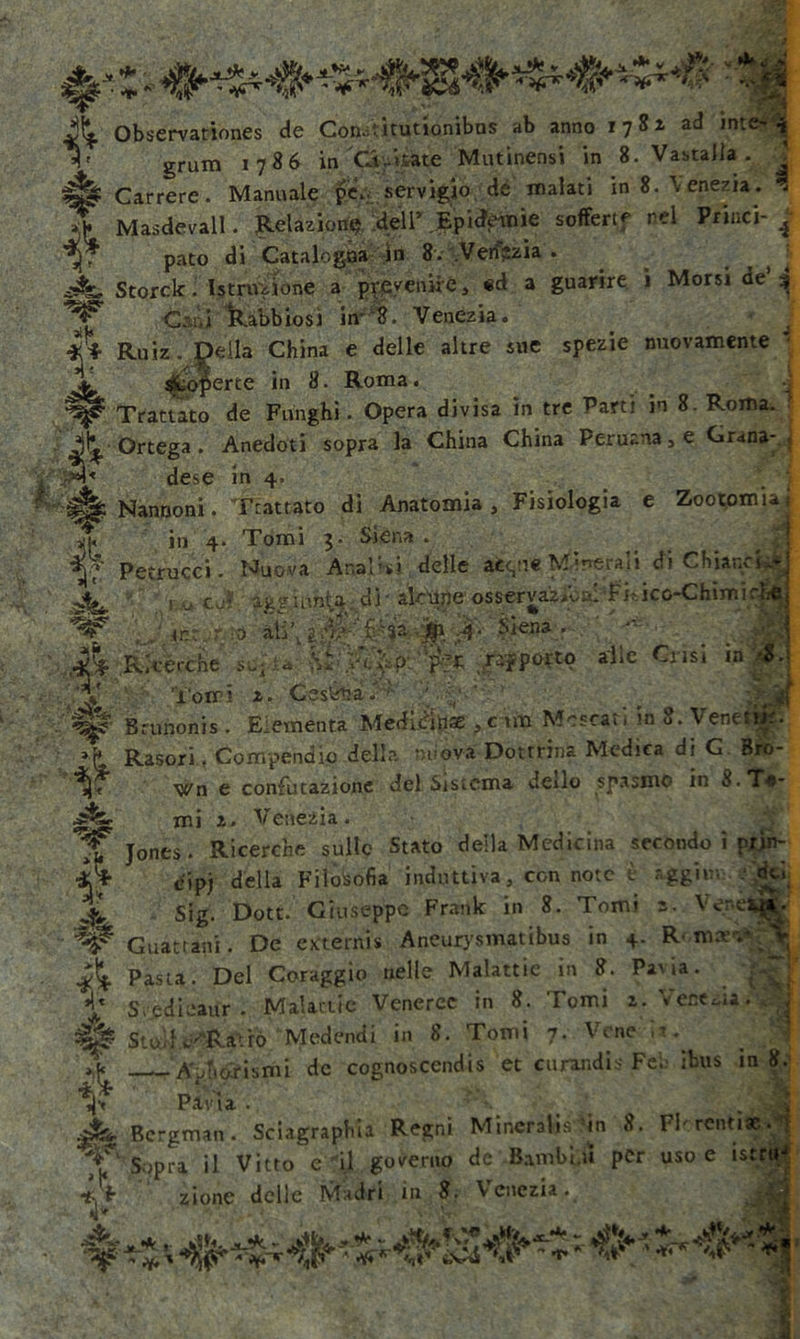 Observationes de Constitutionibus ab anno 1782 ad inte-
grum 1786 in Civitate Mutinensi in 8. Vastalla.
Carrere. Manuale pe. servigio de malati in 8. Venezia.
Masdevall. Relazione dell' Epidemie sofferte nel Princi-
pato di Catalogna in 8. Venezia.
Storck. Istruzione a prevenire, ed a guarire i Morsi de'
Cani Rabbiosi in 8. Venezia.
Ruiz. Della China e delle altre sue spezie nuovamente
scoperte in 8. Roma.
Trattato de Funghi. Opera divisa in tre Parti in 8. Roma.
Ortega. Anedoti sopra la China China Peruana, e Grana-
dese in 4.
Nannoni. Trattato di Anatomia, Fisiologia e Zootomia
in 4. Tomi 3. Siena.
Petrucci. Nuova Analisi delle acque Minerali di Chianci
aggiunta di alcune osservazioni Fisico-Chimiche
in 4. Siena.
Ricerche rapporto alle Crisi in 8.
Tomi 2. Cesena.
Brunonis. Elementa Medicinæ, cum Moscati in 8. Venetiæ.
Rasori. Compendio della nuova Dottrina Medica di G. Bro-
wn e confutazione del Sistema dello spasmo in 8. To-
mi 2. Venezia.
Jones. Ricerche sullo Stato della Medicina secondo i prin-
cipj della Filosofia induttiva, con note e aggiun. dei
Sig. Dott. Giuseppe Frank in 8. Tomi 2. Venezia.
Guattani. De externis Aneurysmatibus in 4. Romæ.
Pasta. Del Coraggio nelle Malattie in 8. Pavia.
Svedieaur. Malattie Veneree in 8. Tomi 2. Venezia.
Stoll. Ratio Medendi in 8. Tomi 7. Vene
—— Aphorismi de cognoscendis et curandis Febribus in 8.
Pavia.
Bergman. Sciagraphia Regni Mineralis in 8. Florentiæ.
Sopra il Vitto e il governo de Bambini per uso e istru-
zione delle Madri in 8. Venezia.